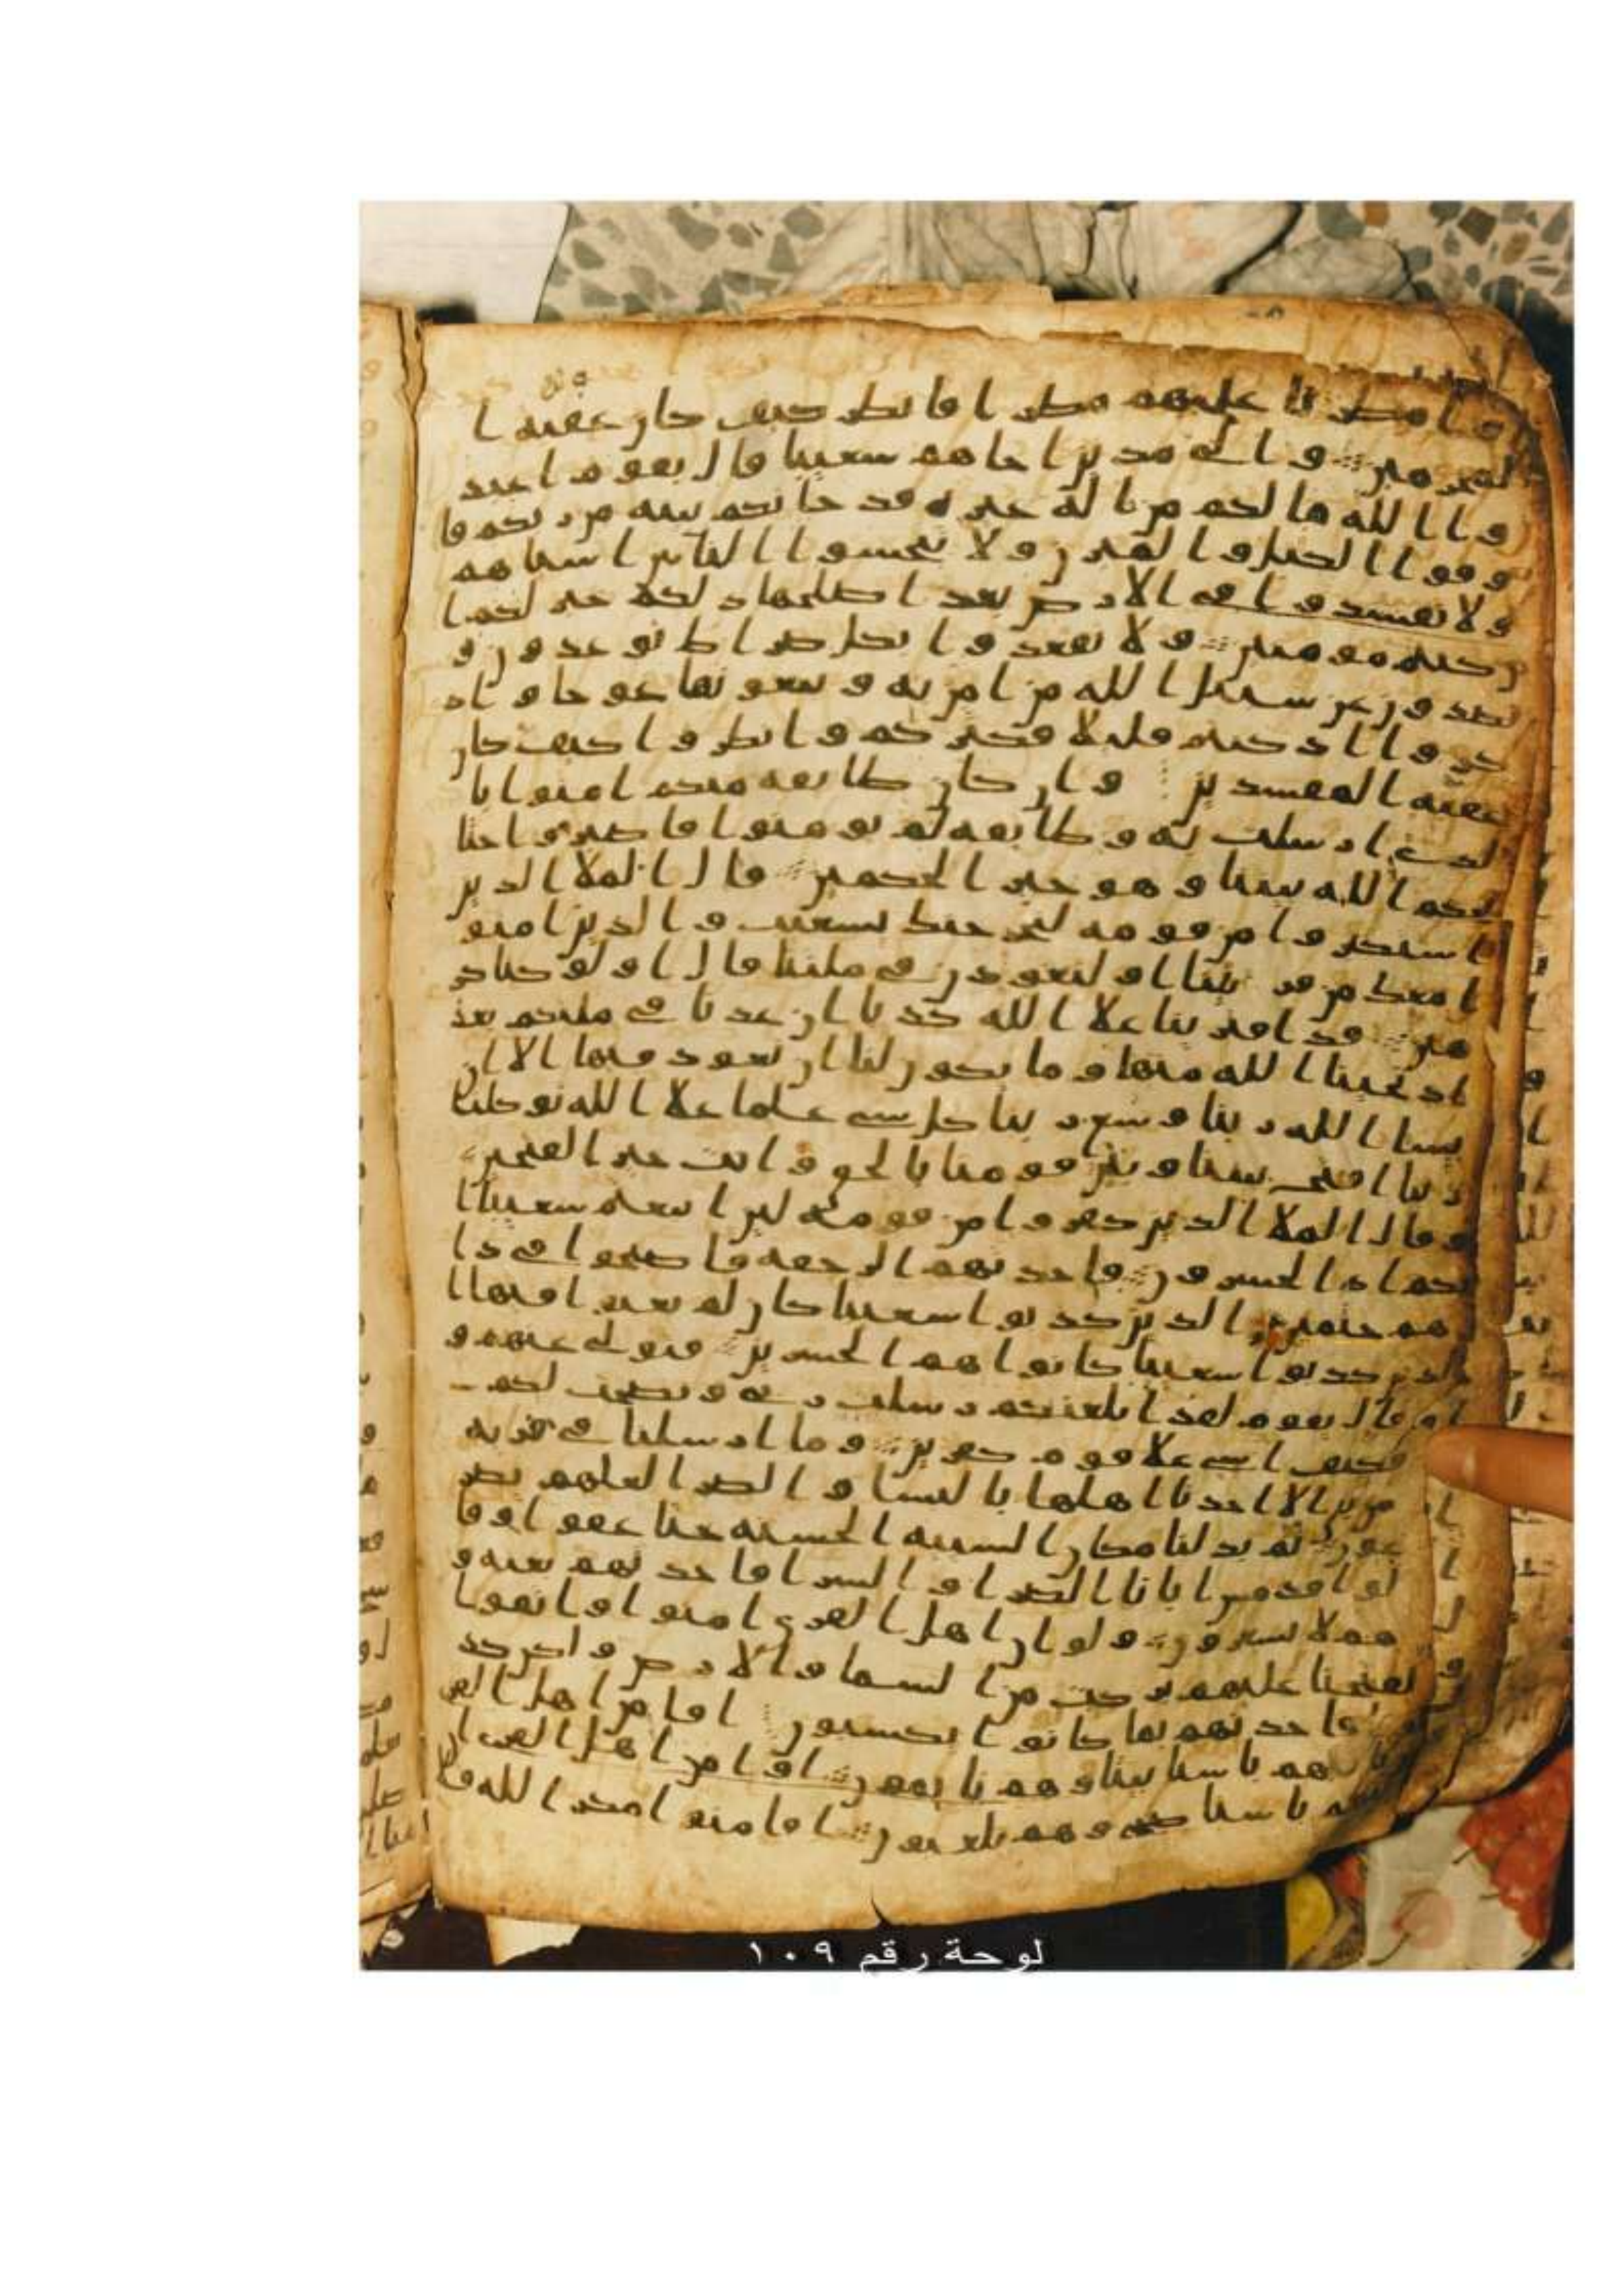 و امطرنا عليهم مطرا فانطر كيف كان عقبه ا
لمجرمين و الى مدين اخاهم شعيبا قال يقوم اعبد
وا الله ما لكم من اله غيره قد جاتكم بينه من ربكم فا
وفوا الكيل و الميزن ولا تبخسوا الناس اشياهم
ولا تفسدوا في الارض بعد اصلحها ذلكم خير لكم ا
ن كنتم مومنين ولا تقعدوا بكل صراط توعدون و
تصدون عن سبيل الله من امن به و تبغونها عوجا و اذ
كروا اذ كنتم قليلا فكثركم و انظروا كيف كان
عقبه المفسدين و ان كان طايفه منكم امنوا با
لذي ارسلت به و طايفه لم يومنوا فاصبروا حتا
يحكم الله بيننا و هو خير الحكمين قال الملا الذين
استكبروا من قومه لنخرجنك يشعيب و الذين امنو
ا معك من قريتنا او لتعودن في ملتنا قال او لو كنا كر
هين قد افترينا علا الله كذبا ان عدنا في ملتكم بعد
اذ نجينا الله منها و ما يكون لنا ان نعود فيها الا ان
يشا الله ربنا وسع ربنا كل شي علما علا الله توكلنا
ربنا افتح بيننا و بين قومنا بالحق و انت خير الفتحين
و قال الملا الذين كفروا من قومه لين اتبعتم شعيبا ا
نكم اذا لخسرون فاخذتهم الرجفه فاصبحوا في دا
رهم جثمين الذين كذبوا شعيبا كان لم يغنوا فيها ا
لذين كذبوا شعيبا كانوا هم الخسرين فتولى عنهم و
قال يقوم لقد ابلغتكم رسلت ربي و نصحت لكم
فكيف اسى علا قوم كفرين و ما ارسلنا في قريه
من نبي الا اخذنا اهلها بالباسا و الضرا لعلهم يضر
عون ثم بدلنا مكان السييه الحسنه حتا عفوا و قا
لوا قد مس ابانا الضرا و السرا فاخذنهم بغته و
هم لا يشعرون و لو ان اهل القرى امنوا و اتقوا
لفتحنا عليهم بركت من السما و الارض و لكن كذ
بوا فاخذنهم بما كانوا يكسبون افامن اهل القر
ى ان ياتيهم باسنا بيتا و هم نايمون او امن اهل القرى ان
ياتيهم باسنا ضحى و هم يلعبون افامنوا مكر الله فلا
لوحة رقم ١٠٩